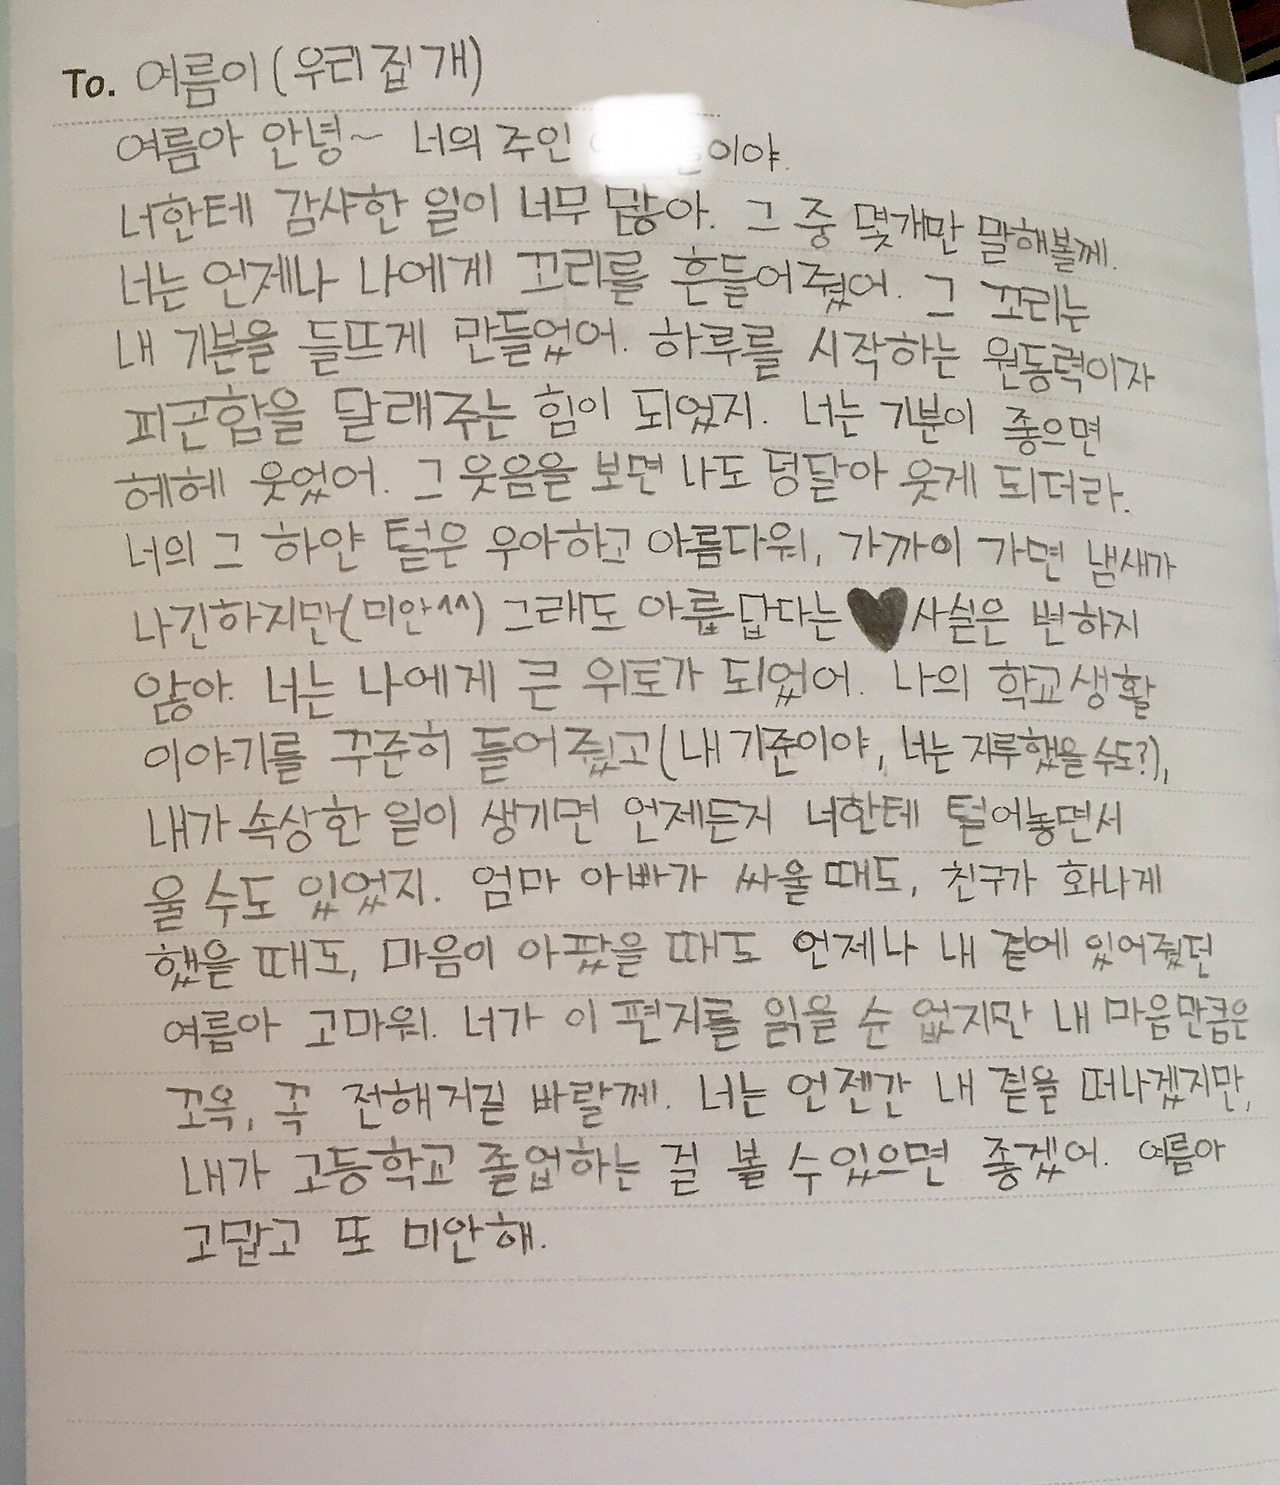 To. 여름이 (우리집 개)
여름아 안녕~ 너의 주인 이야.
너한테 감사한 일이 너무 많아. 그 중 몇개만 말해볼께.
너는 언제나 나에게 꼬리를 흔들어줬어. 그 꼬리는
내 기분을 들뜨게 만들었어. 하루를 시작하는 원동력이자
피곤함을 달래주는 힘이 되었지. 너는 기분이 좋으면
헤헤 웃었어. 그 웃음을 보면 나도 덩달아 웃게 되더라.
너의 그 하얀 털은 우아하고 아름다워, 가까이 가면 냄새가
나긴하지만(미안^^) 그래도 아름답다는 ♥사실은 변하지
않아. 너는 나에게 큰 위로가 되었어. 나의 학교생활
이야기를 꾸준히 들어줬고(내 기준이야, 너는 지루했을 수도?),
내가 속상한 일이 생기면 언제든지 너한테 털어놓면서
울 수도 있었지. 엄마 아빠가 싸울 때도, 친구가 화나게
했을 때도, 마음이 아팠을 때도 언제나 내 곁에 있어줬던
여름아 고마워. 너가 이 편지를 읽을 순 없지만 내 마음만큼은
꼬옥, 꼭 전해지길 바랄께. 너는 언젠간 내 곁을 떠나겠지만,
내가 고등학교 졸업하는 걸 볼 수있으면 좋겠어. 여름아
고맙고 또 미안해.